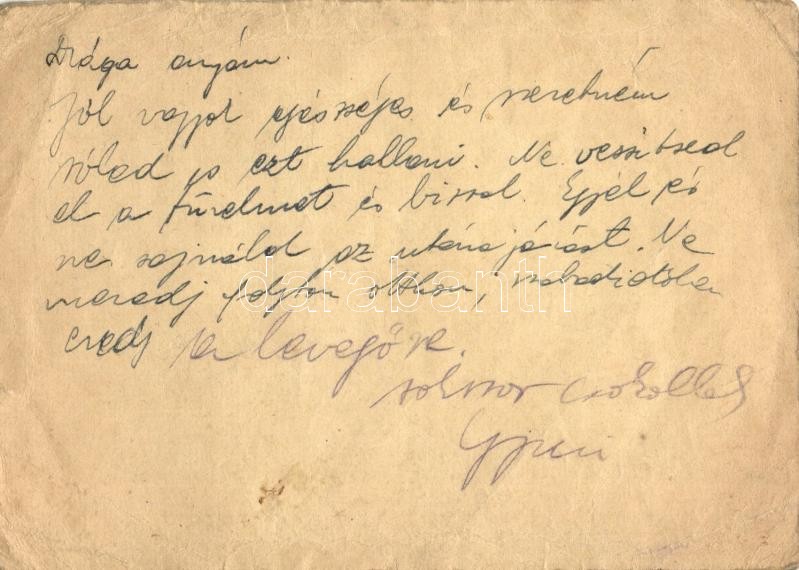 Drága anyám.
Jól vagyok egésséges és szeretném
rólad is ezt hallani. Ne veszitsed
el a türelmet és bizzal. Egyél és
ne sajnáld az utánajárást. Ne
maradj folyton otthon, szabadidőben
eredj a levegőre.
sokszor csókollak
Gyuri
darabanth